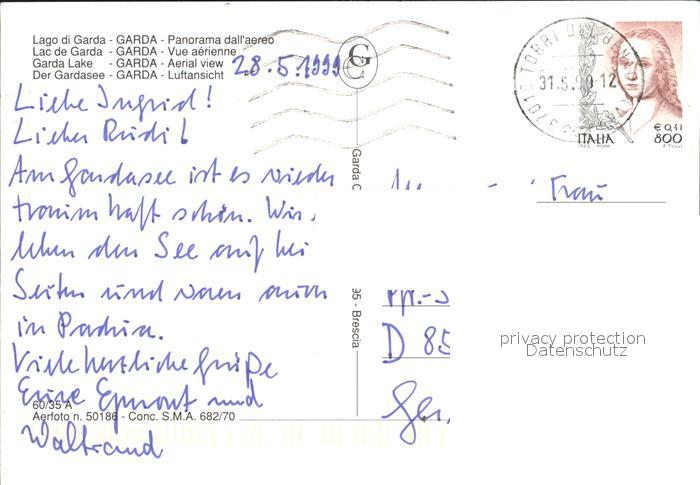 Lago di Garda - GARDA - Panorama dall'aereo
Lac de Garda - GARDA - Vue aérienne
Garda Lake - GARDA - Aerial view
Der Gardasee - GARDA - Luftansicht
28.5.1999
Liebe Ingrid!
Lieber Rudi!
Am Gardasee ist es wieder
traumhaft schön. Wir
leben den See auf bei
Seiten und waren auch
in Padua.
Viele herzliche Grüße
Eure Egmont und
Waltraud
60/35 A
Aerfoto n. 50186 - Conc. S.M.A. 682/70
G
Garda
95 - Brescia
37010 TORRI DEL BENACO
31.5.
12
ITALIA
€ 0,41
800
Frau
D 85
privacy protection
Datenschutz